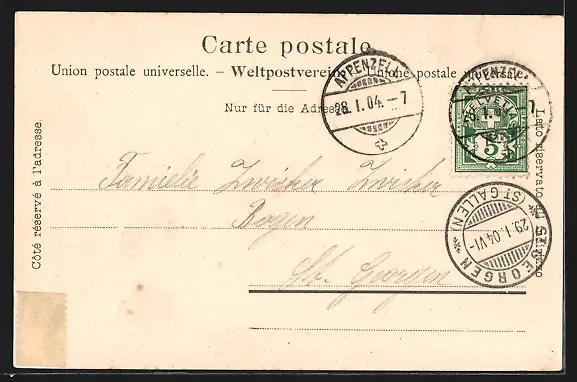 Carte postale.
Union postale universelle. – Weltpostverein. – Unione postale universale.
Nur für die Adresse.
APPENZELL
28.I.04.–7
APPENZELL
HELVETIA
5
Côté réservé à l'adresse.
Lato riservato
Familie Zwicker Zwicker
Bogen
St. Georgen
ST. GEORGEN
(ST. GALLEN)
29.I.04.VI–